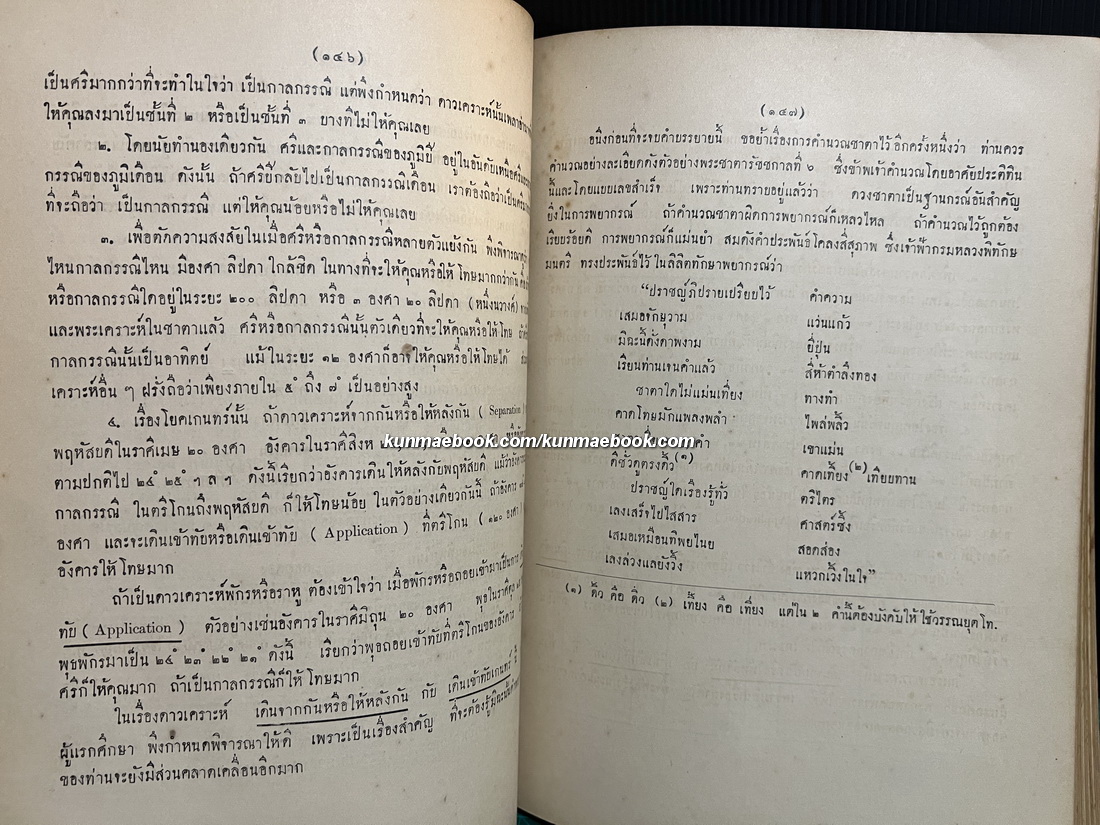 (๑๔๖)
เป็นศรีมากกว่าที่จะทำในใจว่า เป็นกาลกรรณี แต่พึงกำหนดว่า ดาวเคราะห์นั้นเพลา
ให้คุณลงมาเป็นชั้นที่ ๒ หรือเป็นชั้นที่ ๓ บางทีไม่ให้คุณเลย
๒. โดยนัยทำนองเดียวกัน ศรีและกาลกรรณีของภูมิปี อยู่ในอันดับเหนือศรีและ
กรรณีของภูมิเดือน ดังนั้น ถ้าศรีปีกลับไปเป็นกาลกรรณีเดือน เราต้องถือว่าเป็นศรีมาก
ที่จะถือว่า เป็นกาลกรรณี แต่ให้คุณน้อยหรือไม่ให้คุณเลย
๓. เพื่อตัดความสงสัยในเมื่อศรีหรือกาลกรรณีหลายตัวแย้งกัน พึงพิจารณา
ไหนกาลกรรณีไหน มีองศา ลิปดา ใกล้ชิด ในทางที่จะให้คุณหรือให้โทษมากกว่ากัน
หรือกาลกรรณีใดอยู่ในระยะ ๒๐๐ ลิปดา หรือ ๓ องศา ๒๐ ลิปดา (หนึ่งนวางค์)
และพระเคราะห์ในชาตาแล้ว ศรีหรือกาลกรรณีนั้นตัวเดียวที่จะให้คุณหรือให้โทษ
กาลกรรณีนั้นเป็นอาทิตย์ แม้ในระยะ ๑๒ องศาก็อาจให้คุณหรือให้โทษได้
เคราะห์อื่น ๆ ฝรั่งถือว่าเพียงภายใน ๕° ถึง ๗° เป็นอย่างสูง
๔. เรื่องโยคเกนทร์นั้น ถ้าดาวเคราะห์จากกันหรือให้หลังกัน (Separation)
พฤหัสบดีในราศีเมษ ๒๐ องศา อังคารในราศีสิงห
ตามปกติไป ๒๔° ๒๕° ฯลฯ ดังนี้เรียกว่าอังคารเดินให้หลังกับพฤหัสบดี แม้ว่าอังคาร
กาลกรรณี ในตรีโกนถึงพฤหัสบดี ก็ให้โทษน้อย ในตัวอย่างเดียวกันนี้ ถ้าอังคาร
องศา และจะเดินเข้าทับหรือเดินเข้าทับ (Application) ที่ตรีโกน (๑๒๐ องศา)
อังคารให้โทษมาก
ถ้าเป็นดาวเคราะห์พักรหรือราหู ต้องเข้าใจว่า เมื่อพักรหรือถอยเข้ามาเป็นการ
ทับ (Application) ตัวอย่างเช่นอังคารในราศีมิถุน ๒๐ องศา พุธในราศี
พุธพักรมาเป็น ๒๔° ๒๓° ๒๒° ๒๑° ดังนี้ เรียกว่าพุธถอยเข้าทับที่ตรีโกนของอังคาร
ศรีก็ให้คุณมาก ถ้าเป็นกาลกรรณีก็ให้โทษมาก
ในเรื่องดาวเคราะห์ เดินจากกันหรือให้หลังกัน กับ เดินเข้าทับเกนทร์ นี้
ผู้แรกศึกษา พึงกำหนดพิจารณาให้ดี เพราะเป็นเรื่องสำคัญ ที่จะต้องรู้
ของท่านจะยังมีส่วนคลาดเคลื่อนอีกมาก
(๑๔๗)
อนึ่งก่อนที่จะจบคำบรรยายนี้ ขอย้ำเรื่องการคำนวณชาตาไว้อีกครั้งหนึ่งว่า ท่านควร
คำนวณอย่างละเอียดดังตัวอย่างพระชาตารัชชกาลที่ ๖ ซึ่งข้าพเจ้าคำนวณโดยอาศัยประติทิน
นี้และโดยแบบเลขสำเร็จ เพราะท่านทราบอยู่แล้วว่า ดวงชาตาเป็นฐานกรณ์อันสำคัญ
ยิ่งในการพยากรณ์ ถ้าคำนวณชาตาผิดการพยากรณ์ก็เหลวไหล ถ้าคำนวณไว้ถูกต้อง
เรียบร้อยดี การพยากรณ์ก็แม่นยำ สมดังคำประพันธ์โคลงสี่สุภาพ ซึ่งเจ้าฟ้ากรมหลวงพิทักษ
มนตรี ทรงประพันธ์ไว้ในลิลิตทักษาพยากรณ์ว่า
“ปราชญ์ภิปรายเปรียบไว้ คำความ
เสมอจักษุวาม แว่นแก้ว
มิฉะนั้นดั่งดาพงาม ยี่ปุ่น
เรียนท่านเจนคำแล้ว สี่ห้าตำลึงทอง
ชาตาใดไม่แม่นเที่ยง ทางทำ
คาดโทษมักแพลงพลำ ไพล่พลิ้ว
คำ เขาแม่น
ดีชั่วดูตรงดิ้ว(๑) คาดเที้ยง(๒)เทียบทาน
ปราชญ์ใดเรืองรู้ทั่ว ตรีไตร
เลงเสร็จไปไสสาร ศาสตร์ซึ้ง
เสมอเหมือนทิพยไนย สอดส่อง
เลงล่วงแลยังวึ้ง แหวกเวิ้งในใจ”
(๑) ดิ้ว คือ ดิ่ว (๒) เที้ยง คือ เที่ยง แต่ใน ๒ คำนี้ต้องบังคับให้ใช้วรรณยุตโท.
kunmaebook.com/kunmaebook.com